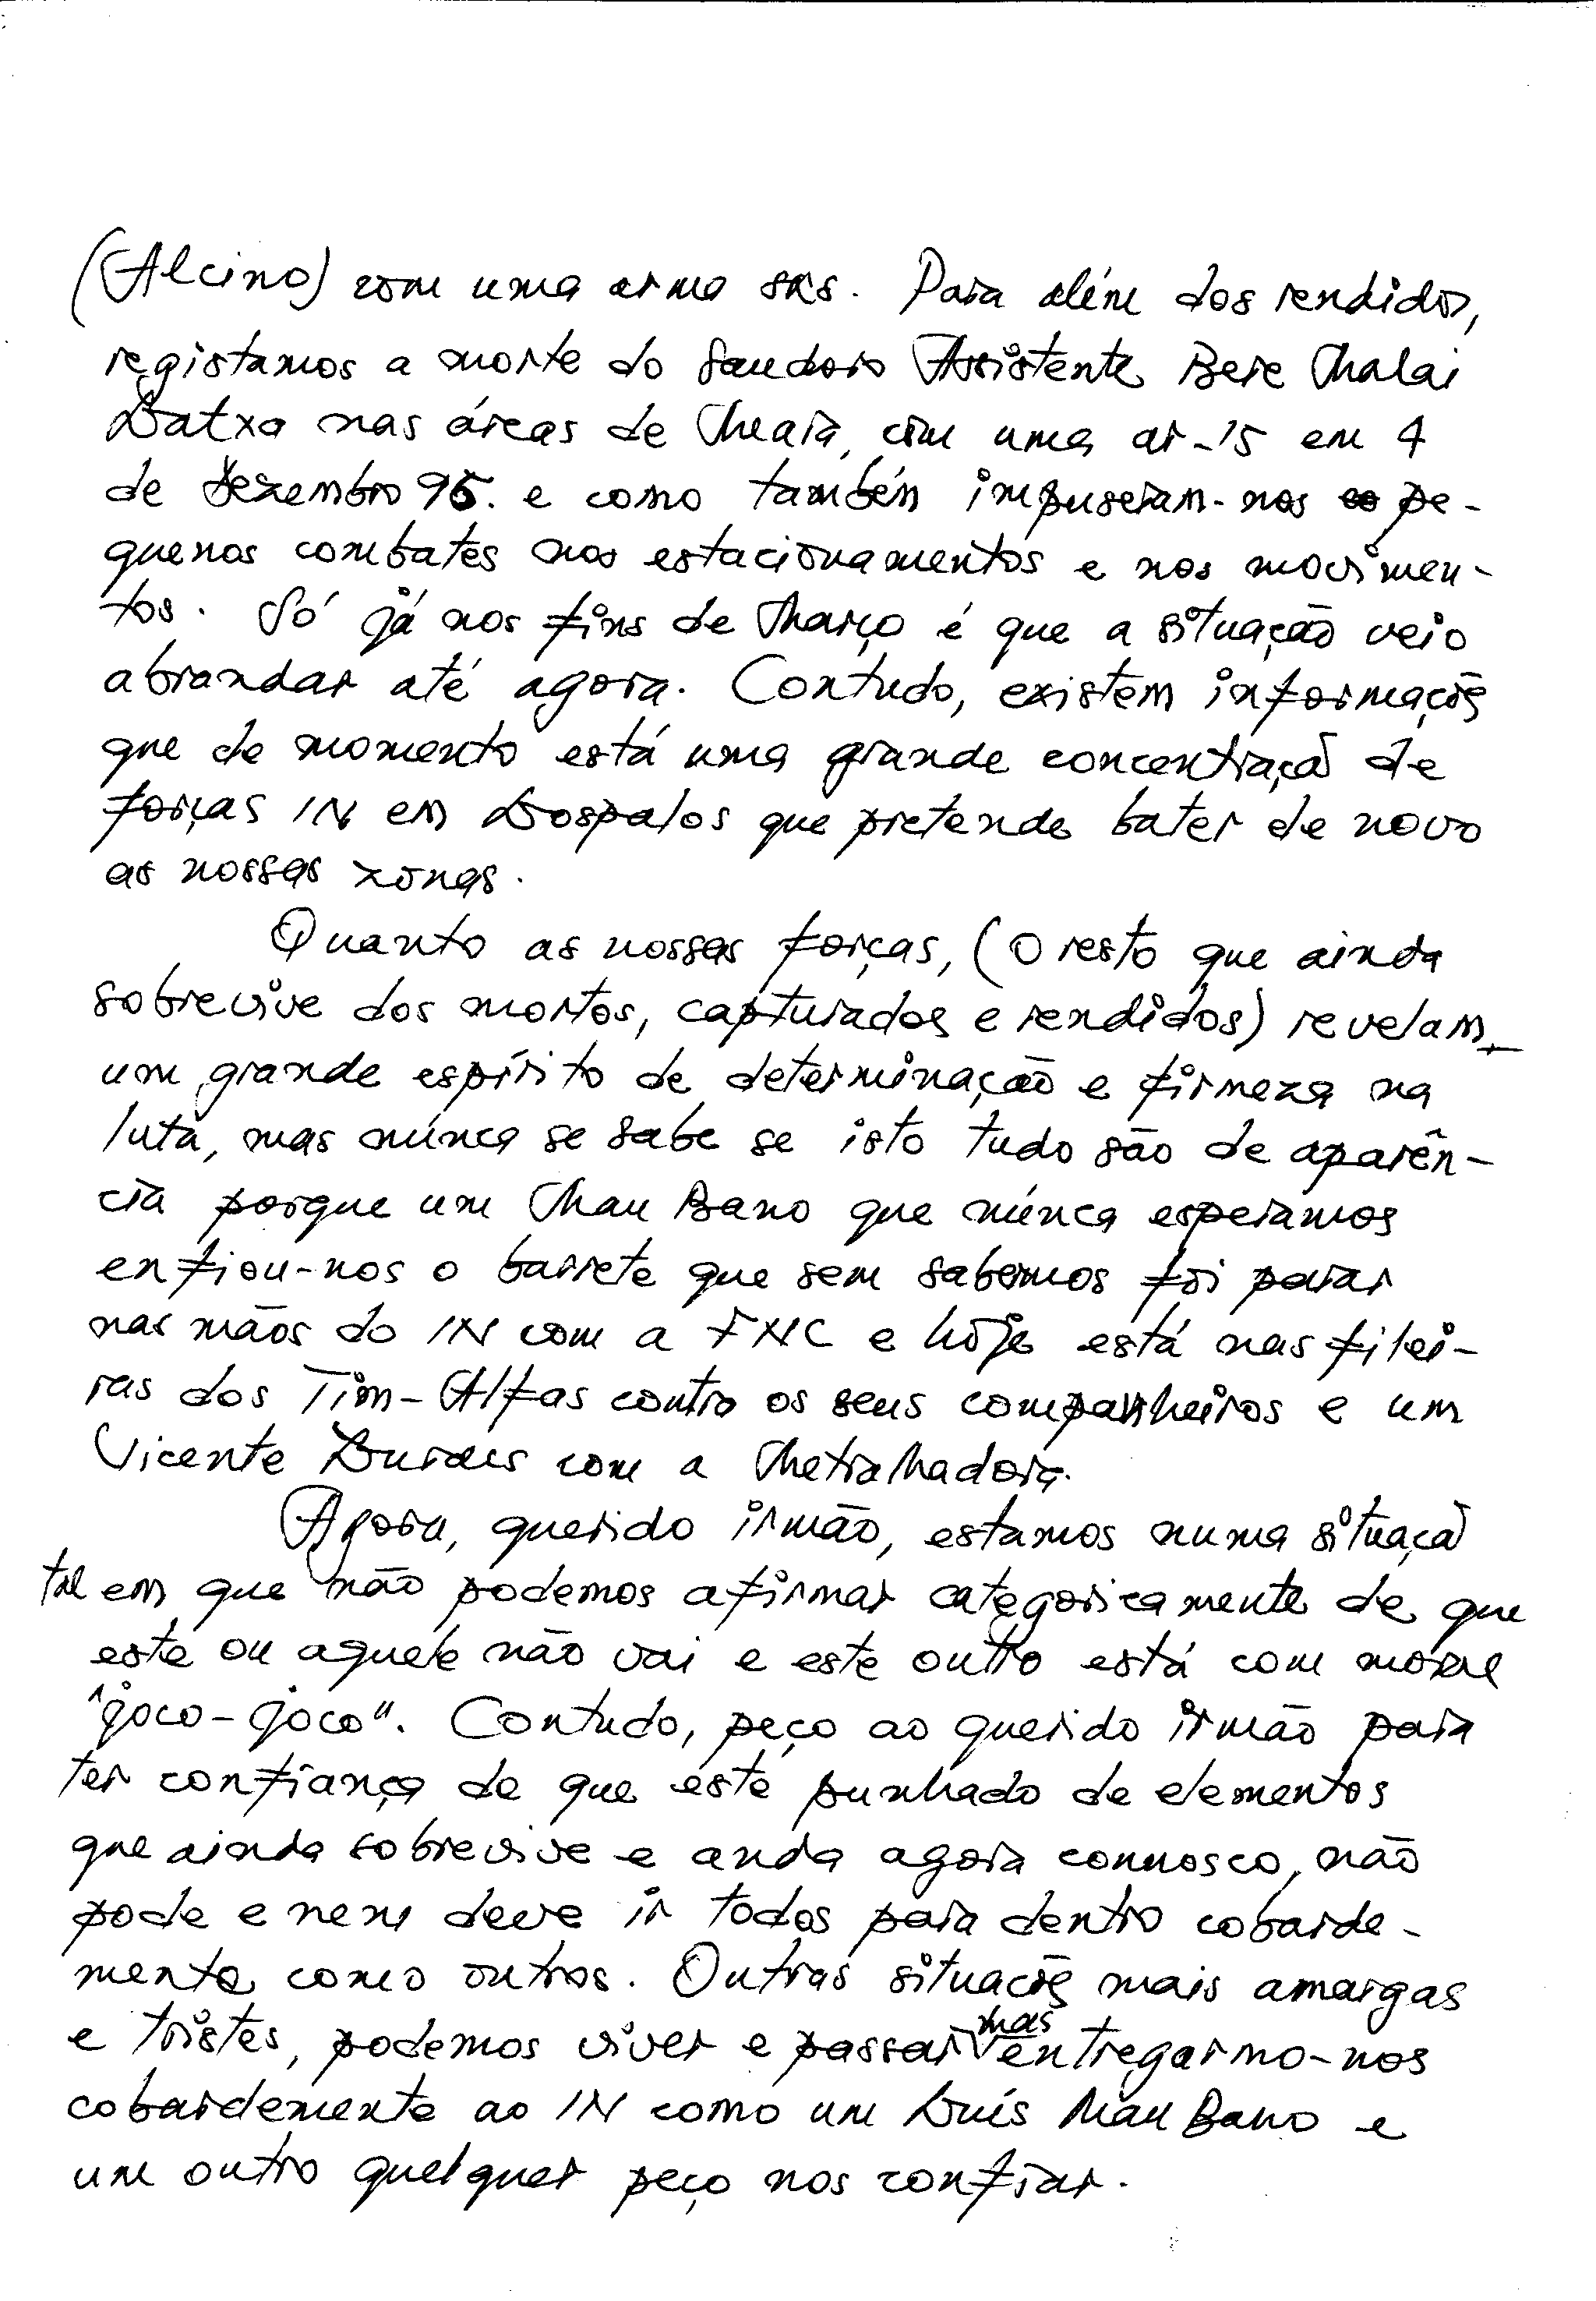 (Alcino) com uma arma sks. Para além dos rendidos,
registamos a morte do saudoso Assistente Bere Malai
Latxa nas áreas de Meara, com uma ar-15 em 4
de Dezembro 95. e como também impuseram-nos pe-
quenos combates nos estacionamentos e nos movimen-
tos. Só já nos fins de Março é que a situação veio
abrandar até agora. Contudo, existem informações
que de momento está uma grande concentração de
forças IN em Lospalos que pretende bater de novo
as nossas zonas.
Quanto as nossas forças, (o resto que ainda
sobrevive dos mortos, capturados e rendidos) revelam
um grande espírito de determinação e firmeza na
luta, mas núnca se sabe se isto tudo são de aparên-
cia porque um Mau Bano que núnca esperamos
enfiou-nos o barrete que sem sabermos foi parar
nas mãos do IN com a FNC e hoje está nas filei-
ras dos Tim-Alfas contra os seus companheiros e um
Vicente Duraes com a Metralhadora.
Agora, querido irmão, estamos numa situaçã
tal em que não podemos afirmar categoricamente de que
este ou aquele não vai e este outro está com moral
"joco-joco". Contudo, peço ao querido irmão para
ter confiança de que este punhado de elementos
que ainda sobrevive e anda agora connosco, não
pode e nem deve ir todos para dentro cobarde-
mente como outros. Outras situações mais amargas
e tristes, podemos viver e passar mas entregarmo-nos
cobardemente ao IN como um Luís Mau Bano e
um outro quelquer peço nos confiar.